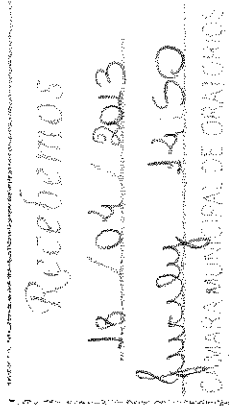 Recebemos
18/04/2013
14:50
CÂMARA MUNICIPAL DE ORATÓRIOS